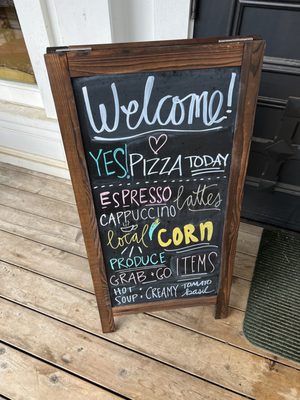 Welcome!
YES! PIZZA TODAY
ESPRESSO lattes
CAPPUCCINO
local CORN
PRODUCE
GRAB + GO ITEMS
HOT SOUP · CREAMY TOMATO basil